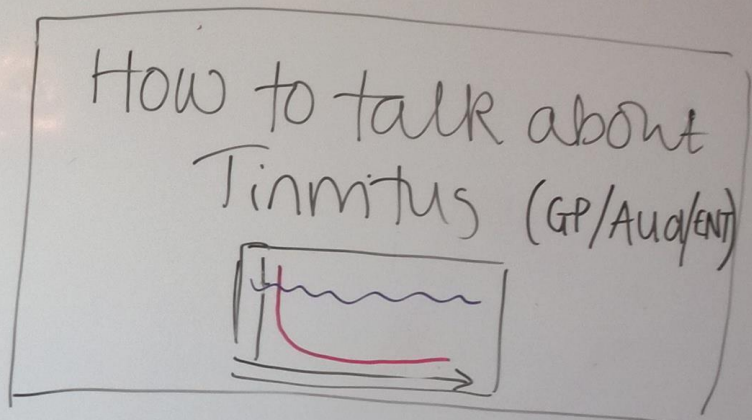 How to talk about
Tinnitus (GP/Aud/ENT)